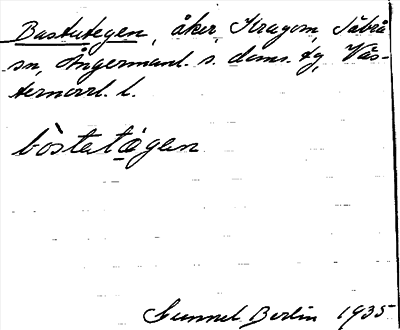 Bastutegen, åker, Kragom, Säbrå
sn, Ångermanl. s. doms. tg, Väs-
ternorrl. l.
bòstetä̀gen
Gunnel Berlin 1935